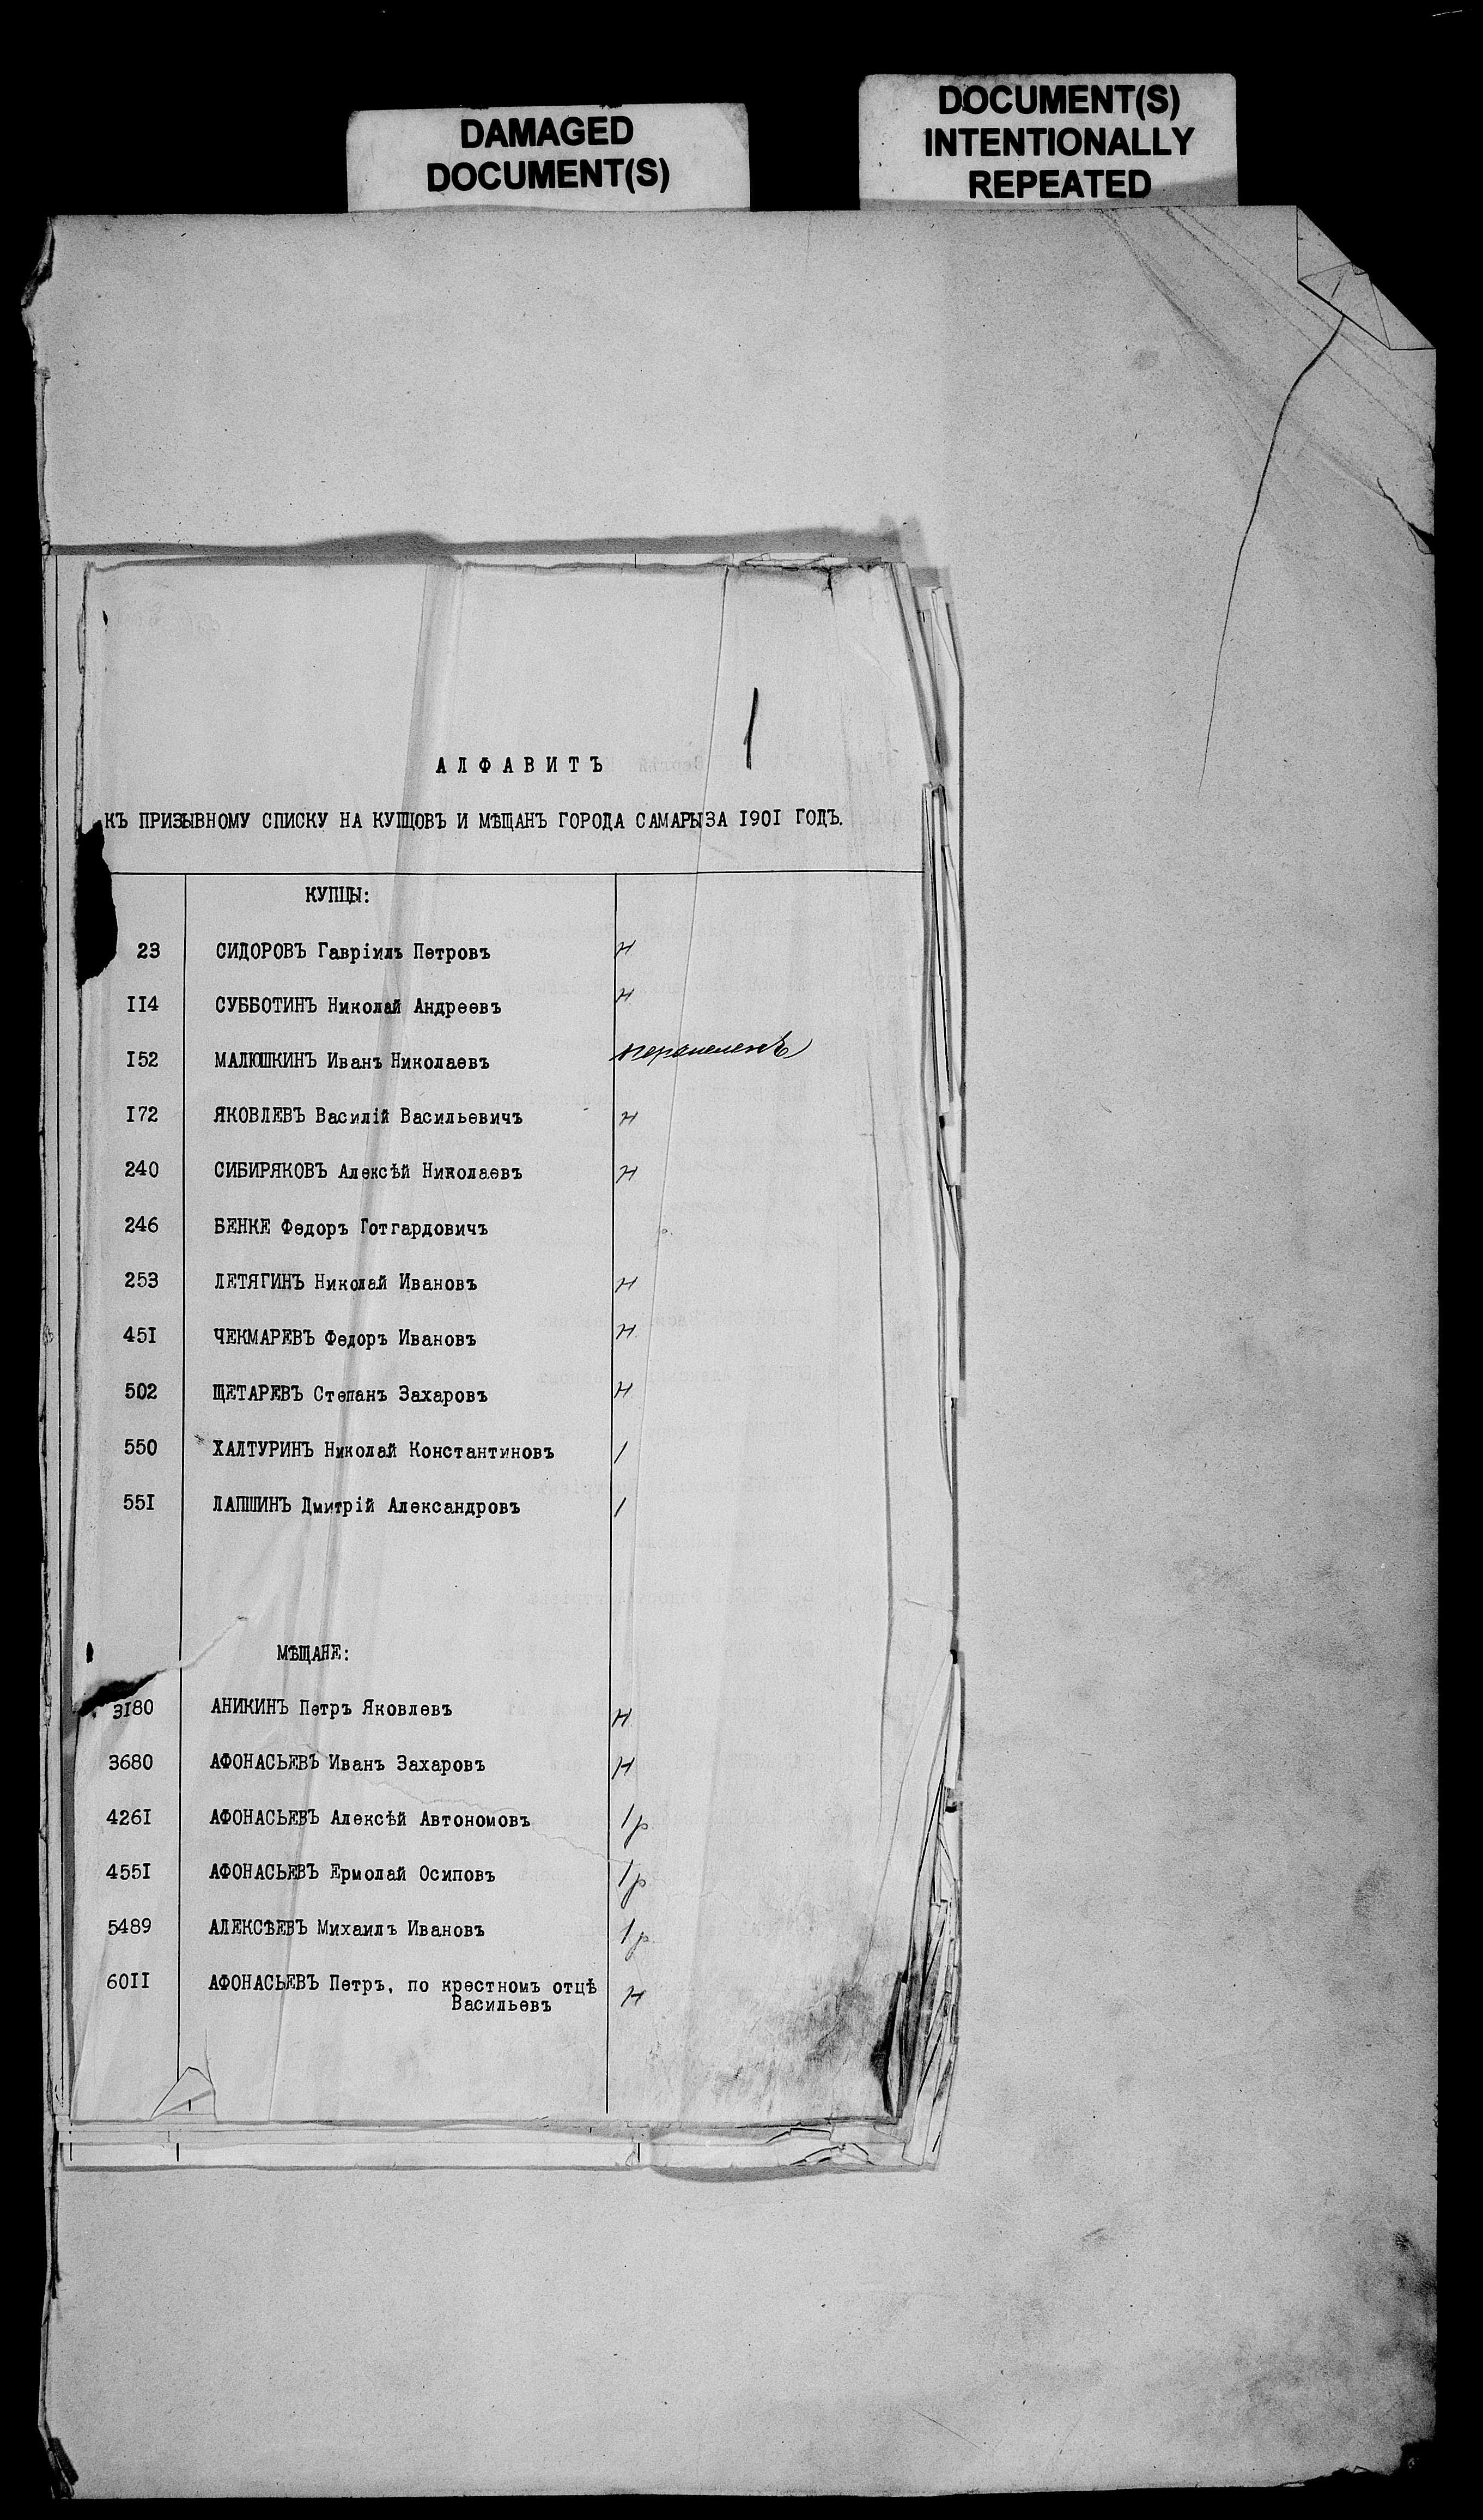 DAMAGED
DOCUMENT(S)
DOCUMENT(S)
INTENTIONALLY
REPEATED
АЛФАВИТЪ
КЪ ПРИЗЫВНОМУ СПИСКУ НА КУПЦОВЪ И МѢЩАНЪ ГОРОДА САМАРЫ ЗА I90I ГОДЪ.
КУПЦЫ:
23 СИДОРОВЪ Гавріилъ Петровъ Н
II4 СУББОТИНЪ Николай Андреевъ Н
I52 МАЛЮШКИНЪ Иванъ Николаевъ
I72 ЯКОВЛЕВЪ Василій Васильевичъ Н
240 СИБИРЯКОВЪ Алексѣй Николаевъ Н
246 БЕНКЕ Федоръ Готгардовичъ
253 ЛЕТЯГИНЪ Николай Ивановъ Н
45I ЧЕКМАРЕВЪ Федоръ Ивановъ Н
502 ЩЕТАРЕВЪ Степанъ Захаровъ Н
550 ХАЛТУРИНЪ Николай Константиновъ 1
55I ЛАПШИНЪ Дмитрій Александровъ 1
МѢЩАНЕ:
3I80 АНИКИНЪ Петръ Яковлевъ Н
3680 АФОНАСЬЕВЪ Иванъ Захаровъ Н
426I АФОНАСЬЕВЪ Алексѣй Автономовъ 1р
455I АФОНАСЬЕВЪ Ермолай Осиповъ 1р
5489 АЛЕКСѢЕВЪ Михаилъ Ивановъ 1р
60II АФОНАСЬЕВЪ Петръ, по крестномъ отцѣ Н
Васильевъ